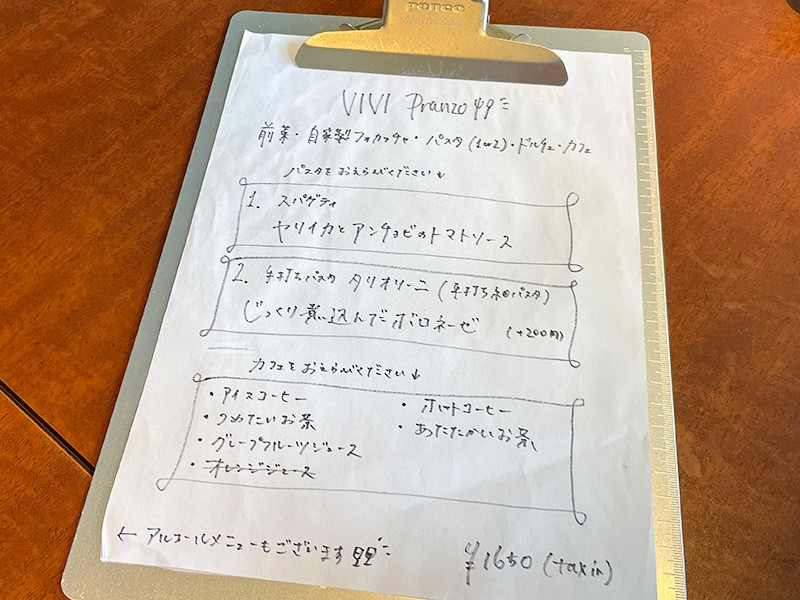 penco
VIVI Pranzo
前菜・自家製フォカッチャ・パスタ(1or2)・ドルチェ・カフェ
パスタをおえらびください↓
1. スパゲティ
ヤリイカとアンチョビのトマトソース
2. 手打ちパスタ タリオリーニ (手打ち細パスタ)
じっくり煮込んだボロネーゼ (+200円)
カフェをおえらびください↓
・アイスコーヒー ・ホットコーヒー
・つめたいお茶 ・あたたかいお茶
・グレープフルーツジュース
・オレンジジュース
← アルコールメニューもございます
¥1650 (tax in)